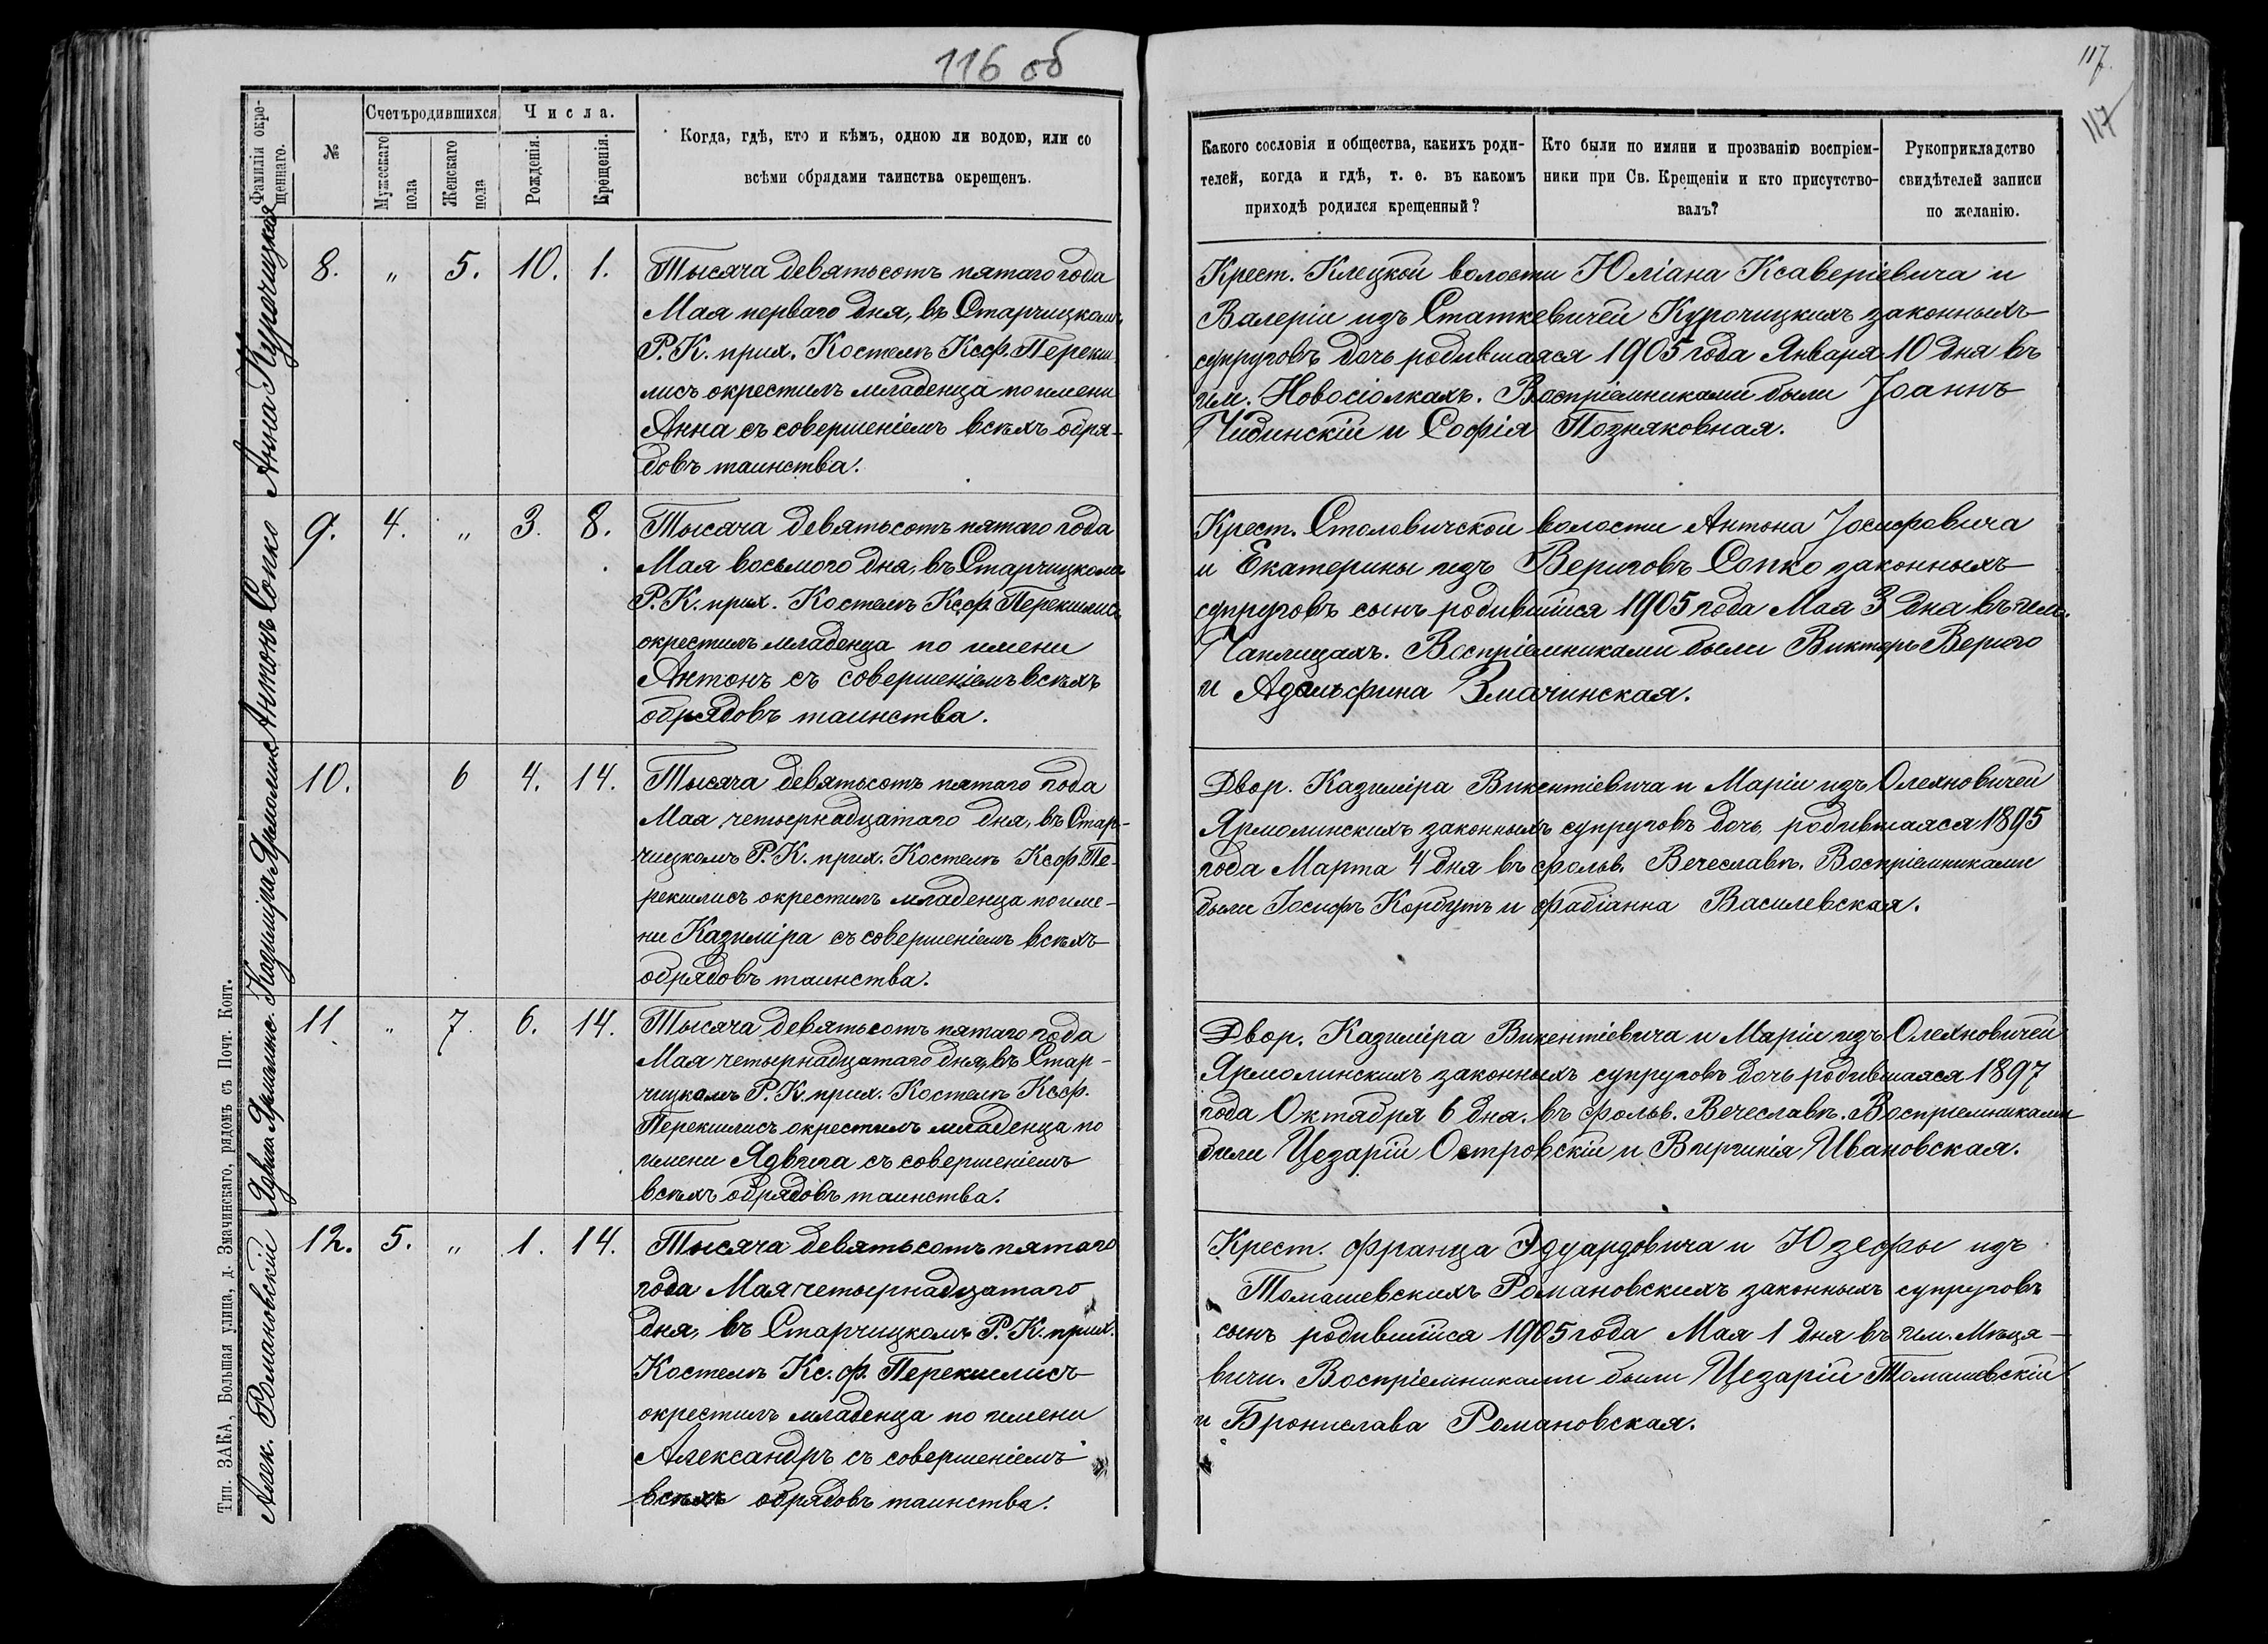 116 об
Фамилія окре-
щеннаго.
№
Счетъ родившихся
Мужескаго
пола
Женскаго
пола
Числа.
Рожденія.
Крещенія.
Когда, гдѣ, кто и кѣмъ, одною ли водою, или со
всѣми обрядами таинства окрещенъ.
Анна Курочицкая
8.
"
5.
10.
1.
Тысяча девятьсотъ пятаго года
Мая перваго дня, въ Старчицкомъ
Р. К. прих. Костелѣ Кс. Ф. Переки-
лисъ окрестилъ младенца по имени
Анна съ совершеніемъ всѣхъ обря-
довъ таинства.
Антонъ Сопко
9.
4.
"
3.
8.
Тысяча девятьсотъ пятаго года
Мая восьмого дня, въ Старчицкомъ
Р. К. прих. Костелѣ Кс. Ф. Перекилисъ
окрестилъ младенца по имени
Антонъ съ совершеніемъ всѣхъ
обрядовъ таинства.
Казиміра Ярмолинс.
10.
6
4.
14.
Тысяча девятьсотъ пятаго года
Мая четырнадцатаго дня, въ Стар-
чицкомъ Р. К. прих. Костелѣ Кс. Ф. Пе-
рекилисъ окрестилъ младенца по име-
ни Казиміра съ совершеніемъ всѣхъ
обрядовъ таинства.
Ядвига Ярмолинс.
11
"
7.
6.
14.
Тысяча девятьсотъ пятаго года
Мая четырнадцатаго дня, въ Стар-
чицкомъ Р. К. прих. Костелѣ Кс. Ф.
Перекилисъ окрестилъ младенца по
имени Ядвига съ совершеніемъ
всѣхъ обрядовъ таинства.
Алек. Романовскій
12.
5.
"
1.
14.
Тысяча девятьсотъ пятаго
года Мая четырнадцатаго
дня, въ Старчицкомъ Р. К. прих.
Костелѣ Кс. Ф. Перекилисъ
окрестилъ младенца по имени
Александръ съ совершеніемъ
всѣхъ обрядовъ таинства.
Тип. ЗАКА, Большая улица, д. Змачинскаго, рядомъ съ Почт. Конт.
117.
117
Какого сословія и общества, какихъ роди-
телей, когда и гдѣ, т. е. въ какомъ
приходѣ родился крещенный?
Кто были по имяни и прозванію воспріем-
ники при Св. Крещеніи и кто присутство-
валъ?
Рукоприкладство
свидѣтелей записи
по желанію.
Крест. Клецкой волости Юліана Ксаверіевича и
Валеріи изъ Статкевичей Курочицкихъ законныхъ
супруговъ дочь родившаяся 1905 года Января 10 дня въ
им. Новосіолкахъ. Воспріемниками были Іоаннъ
Чибинскій и Софія Позняковная.
Крест. Столовичской волости Антона Іосифовича
и Екатерины изъ Вериговъ Сопко законныхъ
супруговъ сынъ родившійся 1905 года Мая 3 дня въ им.
Чаплицахъ. Воспріемниками были Викторъ Вериго
и Адольфина Змачинская.
Двор. Казиміра Викентіевича и Маріи изъ Олехновичей
Ярмолинскихъ законныхъ супруговъ дочь, родившаяся 1895
года Марта 4 дня въ фольв. Вечеславѣ. Воспріемниками
были Іосифъ Корбутъ и Фабіанна Василевская.
Двор. Казиміра Викентіевича и Маріи изъ Олехновичей
Ярмолинскихъ законныхъ супруговъ дочь родившаяся 1897
года Октября 6 дня. въ фольв. Вечеславѣ. Воспріемниками
были Цезарій Островскій и Виргинія Ивановская.
Крест. Франца Эдуардовича и Юзефы изъ
Томашевскихъ Романовскихъ законныхъ супруговъ
сынъ родившійся 1905 года Мая 1 дня въ им. Мѣця-
вичи. Воспріемниками были Цезарій Томашевскій
и Бронислава Романовская.